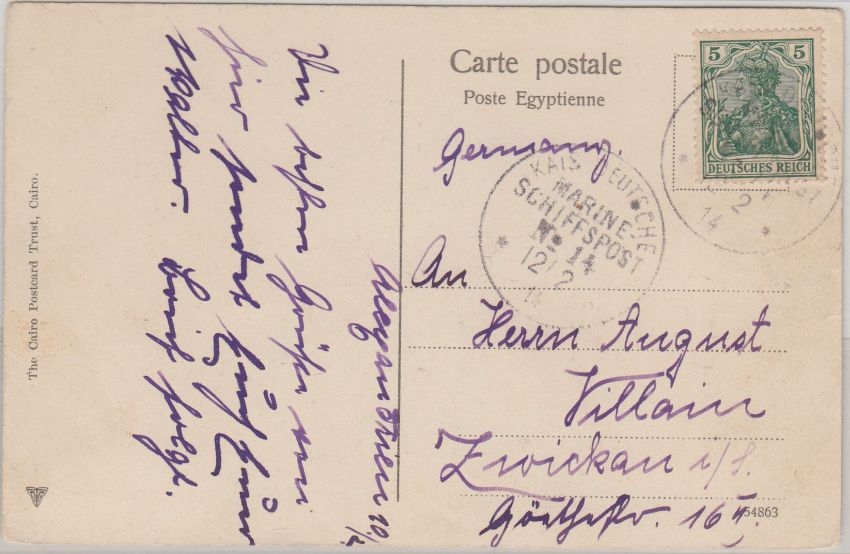 Carte postale
Poste Egyptienne
Germany.
5 5
DEUTSCHES REICH
KAIS. DEUTSCHE
MARINE-
SCHIFFSPOST
No 14
12/2
14
2
14
An
Herrn August
Villain
Zwickau i/S.
Goethestr. 16 II.
54863
Alexandrien 10/2
Die besten Grüße von
hier sendet
Walter. Brief folgt.
The Cairo Postcard Trust, Cairo.